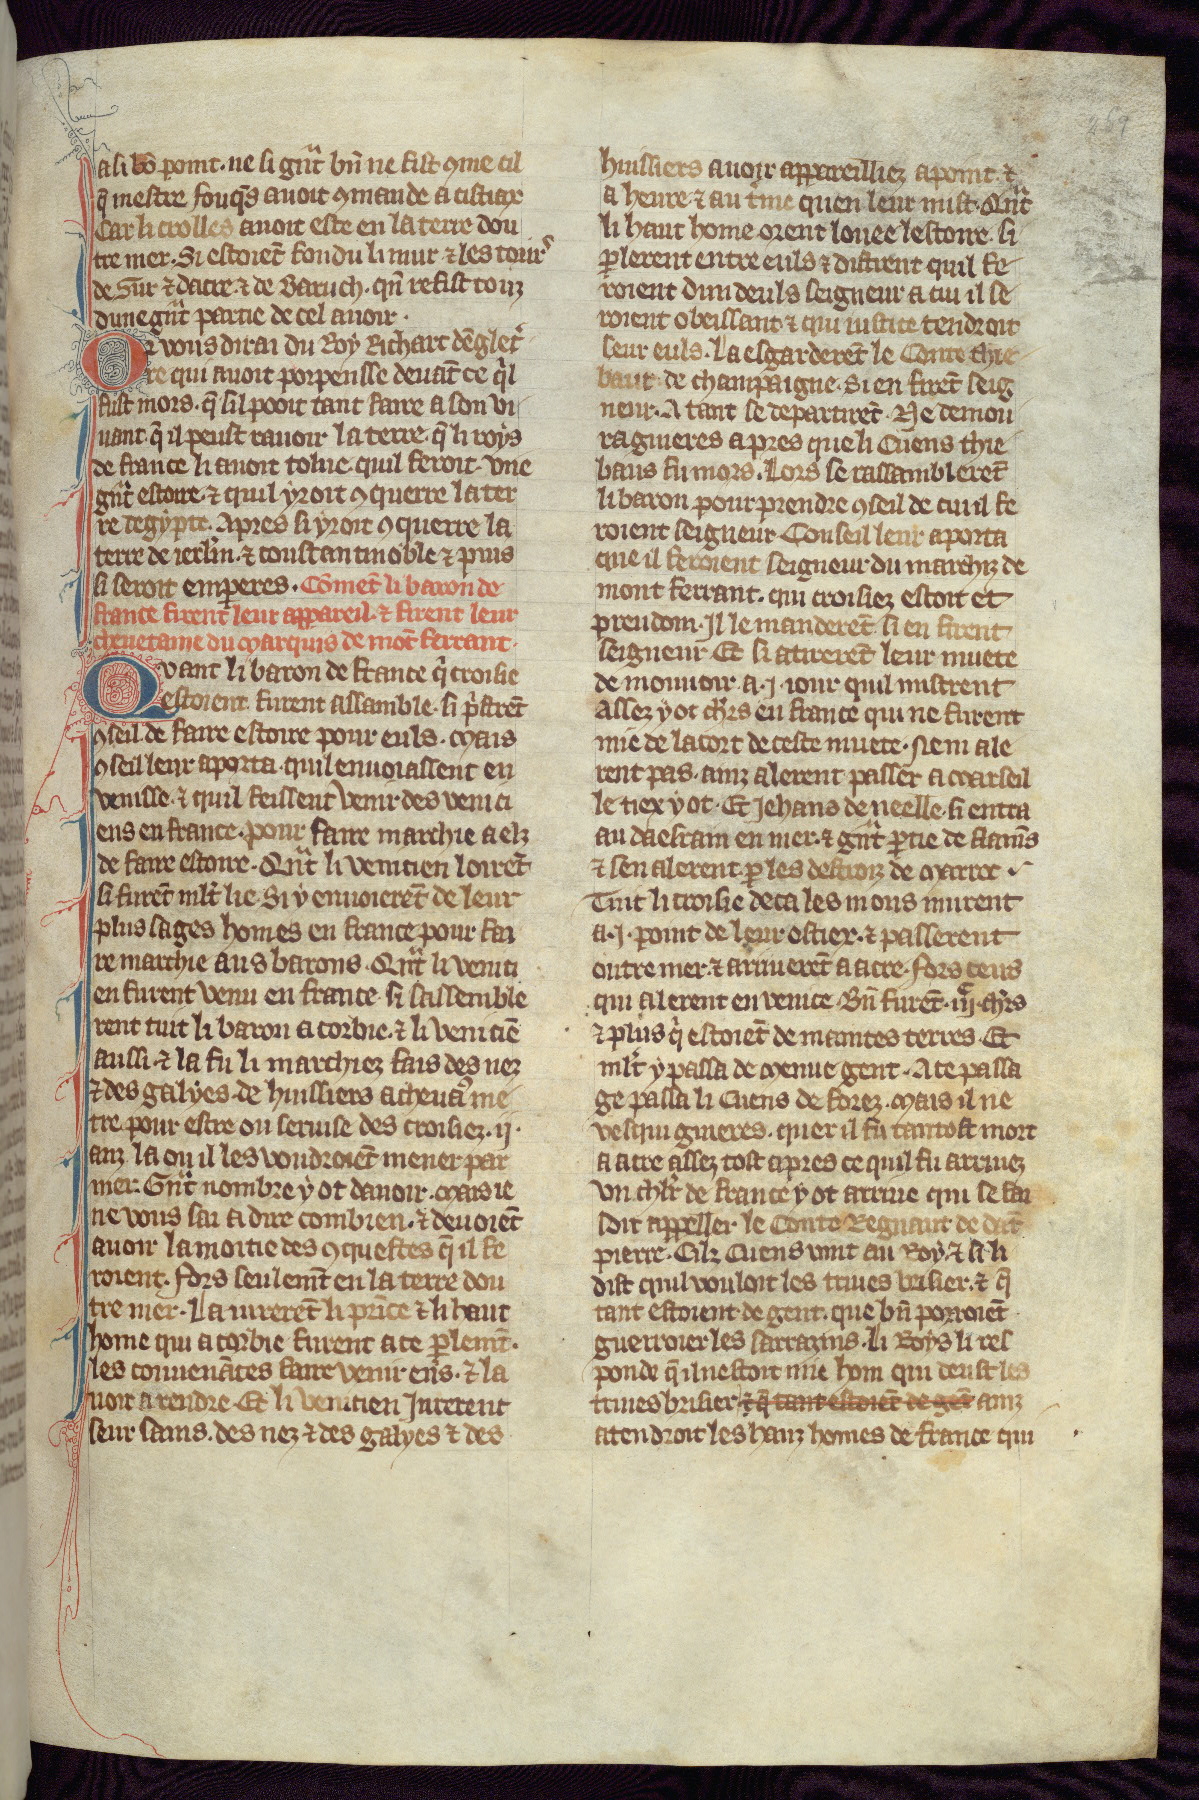 a si bō point. ne si gnͣt bn̄ ne fist ꝯme cil
q̄ mestre fouq̄s auoit ꝯmande a cistiax
Car li crolles auoit este en la terre dou
tre mer. Si estoiēt fondu li mur ⁊ les tourˢ
de Sur ⁊ dacre ⁊ de Baruch. qn̄ refist touz
dune gnͣt partie de cel auoir.
Or vous dirai du Roy Richart dēgletˀ
re qui auoit porpensse deuāt ce q̄l
fust mors. q̄ sil pooit tant faire a son vi
uant q̄ il peust rauoir la terre. q̄ li roys
de france li auoit tolue. quil feroit vne
gnͣt estoire. ⁊ quil yroit ꝯquerre la ter
re degypte. Apres si yroit ꝯquerre la
terre de ierl̄m. ⁊ constantinoble ⁊ puis
si seroit emperes. Cōmēt li baron de
france firent leur appareil. ⁊ firent leur
cheuetaine du Marquis de mōt ferrant.
Quant li baron de france q̄ croisie
estoient furent assamble. si p̄ſrēt
ꝯseil de faire estoire pour euls. Mais
ꝯseil leur aporta. quil enuoiassent en
venisse. ⁊ quil feissent venir des venici
ens en france. pour faire marchie a elz
de faire estoire. Qnͣt li venicien loirēt
si furēt ml̄t lie. Si y enuoierēt de leur
plus sages homes en france pour fai
re marchie aus barons. Qnͣt li venici
en furent venu en france. si sassemble
rent tuit li baron a corbie. ⁊ li veniciē
aussi. ⁊ la fu li marchiez fais des nez
⁊ des galyes. de huissiers a cheuaˢ me
tre. pour estre ou seruise des croisiez. ij.
anz la ou il les voudroiēt mener par
mer. Gnͣt nombre y ot dauoir. Mais ie
ne vous sai a dire combien. ⁊ deuoiēt
auoir la moitie des ꝯquestes q̄ il fe
roient. fors seulem̄t en la terre dou
tre mer. La iurerēt li prīce ⁊ li haut
home qui a corbie furent a ce ꝑlem̄t.
les conuenāces faire venir en̄s. ⁊ la
uoir a rendre. Et li venicien Iurerent
seur sains. des nez ⁊ des galyes ⁊ des
huissiers auoir appareilliez a point. ⁊
a heure. ⁊ au t̄me quen leur mist. Qnͣt
li haut home orent louee lestoire. si
ꝑlerent entre euls ⁊ distrent quil fe
roient dun deuls seigneur a cui il se
roient obeissant. ⁊ qui iustice tendroit
seur euls. La esgarderēt le Conte thie
baut. de champaigne. Si en firēt seig
neur. A tant se departirēt. Ne demou
ra guieres apres que li Cuens thie
baus fu mors. Lors se rassamblerēt
li baron pour prendre ꝯseil de cui il fe
roient seigneur. Conseil leur aporta
que il feroient seigneur du marchiz de
mont ferrant. qui croisiez estoit et
preudom. Il le manderēt. si en firent
seigneur. Et si atirerēt leur muete
de mouuoir. a .j. iour quil mistrent
Assez y ot chr̄s en france qui ne furent
mie de lacort de ceste muete. Ne ni ale
rent pas. ainz alerent passer a Marseil
le tiex y ot. Et Jehans de neelle. si entra
au dan en mer. ⁊ gnͣt ꝑtie de flamēs
⁊ sen alerent. ꝑ les destroiz de Marroc.
Tuit li croisie deca les mons murent
a .j. point de leur ostiex. ⁊ passerent
outre mer. ⁊ arriuerēt a acre. fors ceus
qui alerent en venice. Bn̄ furēt .iijͨ. chr̄s
⁊ plus q̄ estoiēt de maintes terres. Et
ml̄t y passa de Menue gent. A ce passa
ge passa li Cuens de forez. Mais il ne
vesqui guieres. quer il fu tantost mort
a acre assez tost apres ce quil fu arriuez
Vn chl̄r de france y ot arriue qui se fai
soit appeller le Conte Regnaut de dāt
pierre. Cilz Cuens vint au Roy. ⁊ si li
dist quil vouloit les triues brisier. ⁊ q̄
tant estoient de gent. que bn̄ porroiēt
guerroier les sarrazins. li Roys li res
ponde q̄ il nestoit mie hom qui deust les
triues brisier ⁊ q̄ tant estoiēt de gēt ainz
atendroit les hauz homes de france qui